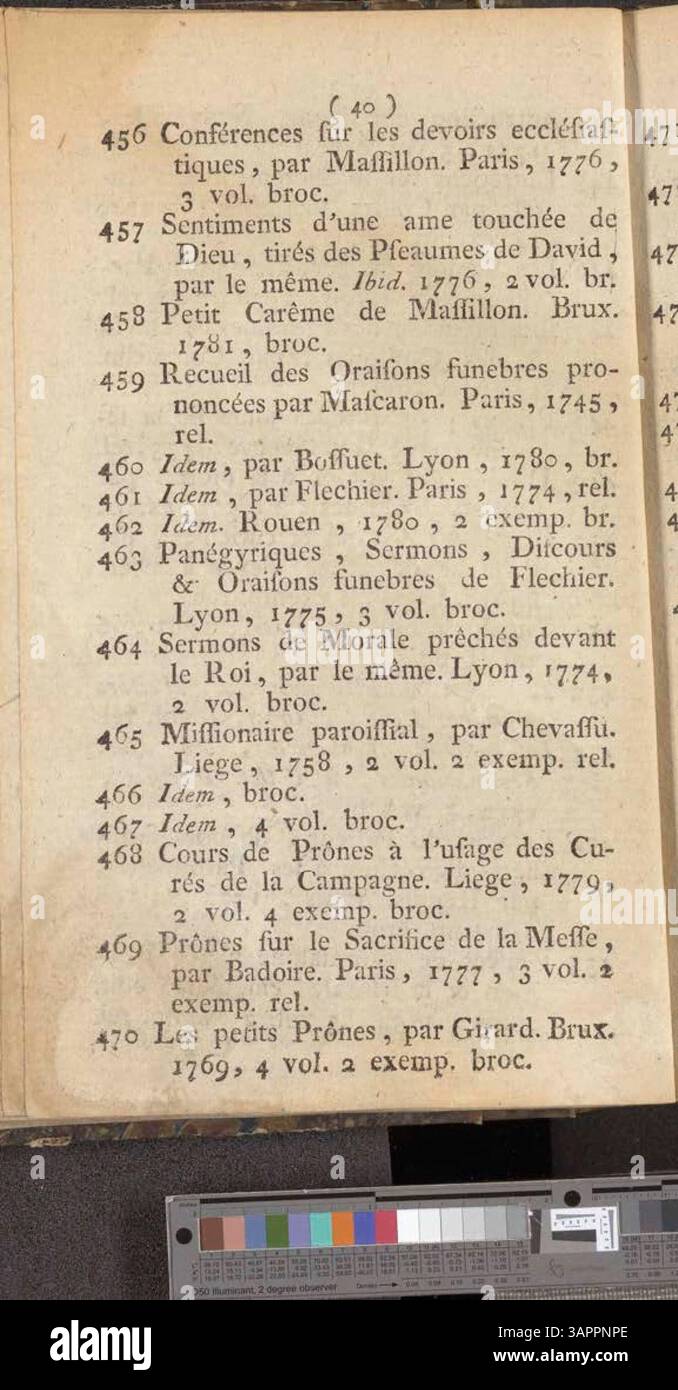 ( 40 )
456 Conférences ſur les devoirs eccléſiaſ-
tiques, par Maſſillon. Paris, 1776,
3 vol. broc.
457 Sentiments d'une ame touchée de
Dieu, tirés des Pſeaumes de David,
par le même. Ibid. 1776, 2 vol. br.
458 Petit Carême de Maſſillon. Brux.
1781, broc.
459 Recueil des Oraiſons funebres pro-
noncées par Maſcaron. Paris, 1745,
rel.
460 Idem, par Boſſuet. Lyon, 1780, br.
461 Idem, par Flechier. Paris, 1774, rel.
462 Idem. Rouen, 1780, 2 exemp. br.
463 Panégyriques, Sermons, Diſcours
& Oraiſons funebres de Flechier.
Lyon, 1775, 3 vol. broc.
464 Sermons de Morale prêchés devant
le Roi, par le même. Lyon, 1774,
2 vol. broc.
465 Miſſionaire paroiſſial, par Chevaſſu.
Liege, 1758, 2 vol. 2 exemp. rel.
466 Idem, broc.
467 Idem, 4 vol. broc.
468 Cours de Prônes à l'uſage des Cu-
rés de la Campagne. Liege, 1779,
2 vol. 4 exemp. broc.
469 Prônes ſur le Sacrifice de la Meſſe,
par Badoire. Paris, 1777, 3 vol. 2
exemp. rel.
470 Les petits Prônes, par Girard. Brux.
1769, 4 vol. 2 exemp. broc.
D50 Illuminant, 2 degree observer
Density
alamy
Image ID: 3APPNPE
www.alamy.com